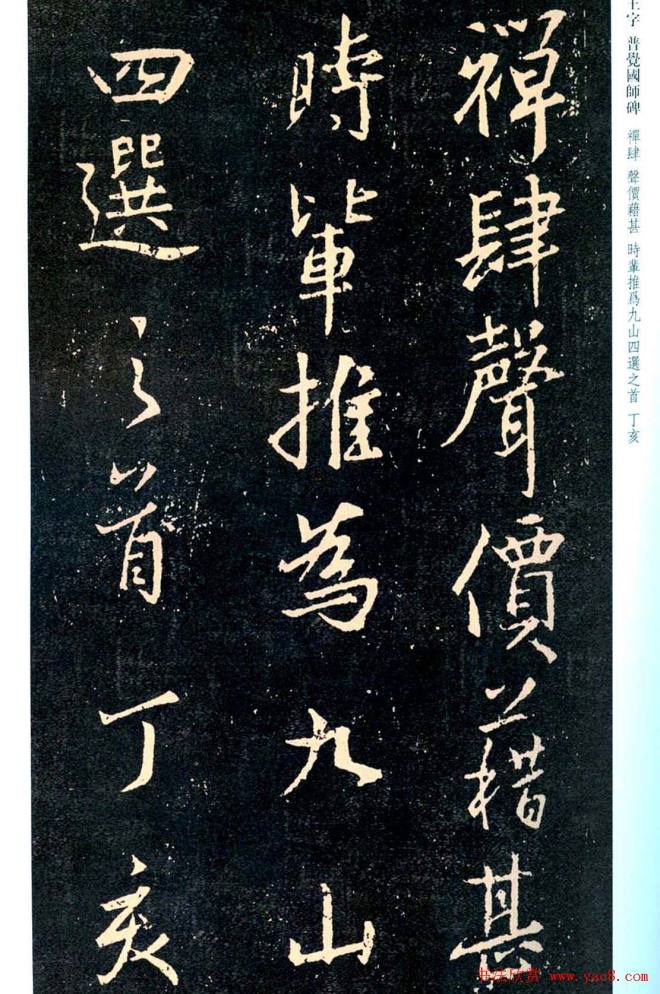 王字 普覺國師碑 禪肆 聲價藉甚 時輩推爲九山四選之首 丁亥
禪肆聲價藉甚
時輩推為九山
四選之首丁亥
书法欣赏 www.yac8.com